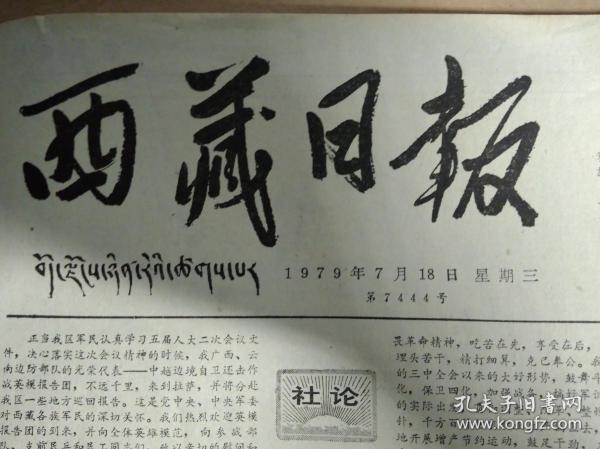 西藏日報
1979年7月18日 星期三
第7444号
正当我区军民认真学习五届人大二次会议文
件，决心落实这次会议精神的时候，我广西、云
南边防部队的光荣代表——中越边境自卫还击作
战英模报告团，不远千里，来到拉萨，并将分赴
我区一些地方巡回报告。这是党中央、中央军委
对西藏各族军民的深切关怀。我们热烈欢迎英模
报告团的到来，并向全体英雄模范，向参战部
社论
畏革命精神，吃苦在先，享受在后，
埋头苦干，精打细算，克己奉公。我
的三中全会以来的大好形势，鼓舞斗
化，保卫四化，加强战备
的实际出
针，千方百
地开展增产节约运动，鼓足干劲，
孔夫子旧书网